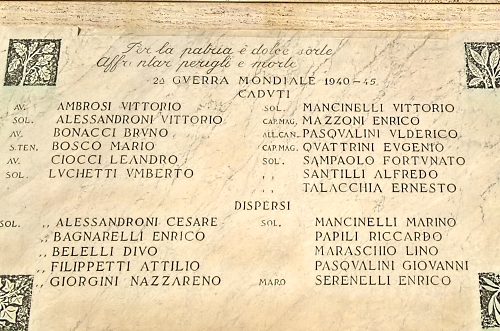 Per la patria è dolce sorte
Affrontar perigli e morte
2ª GVERRA MONDIALE 1940-45
CADVTI
AV. AMBROSI VITTORIO
SOL. ALESSANDRONI VITTORIO
AV. BONACCI BRVNO
S.TEN. BOSCO MARIO
AV. CIOCCI LEANDRO
SOL. LVCHETTI VMBERTO
SOL. MANCINELLI VITTORIO
CAP.MAG. MAZZONI ENRICO
ALL.CAN. PASQVALINI VLDERICO
CAP.MAG. QVATTRINI EVGENIO
SOL. SAMPAOLO FORTVNATO
,, SANTILLI ALFREDO
,, TALACCHIA ERNESTO
DISPERSI
SOL. ,, ALESSANDRONI CESARE
,, BAGNARELLI ENRICO
,, BELELLI DIVO
,, FILIPPETTI ATTILIO
,, GIORGINI NAZZARENO
SOL. MANCINELLI MARINO
PAPILI RICCARDO
MARASCHIO LINO
PASQVALINI GIOVANNI
MARO SERENELLI ENRICO